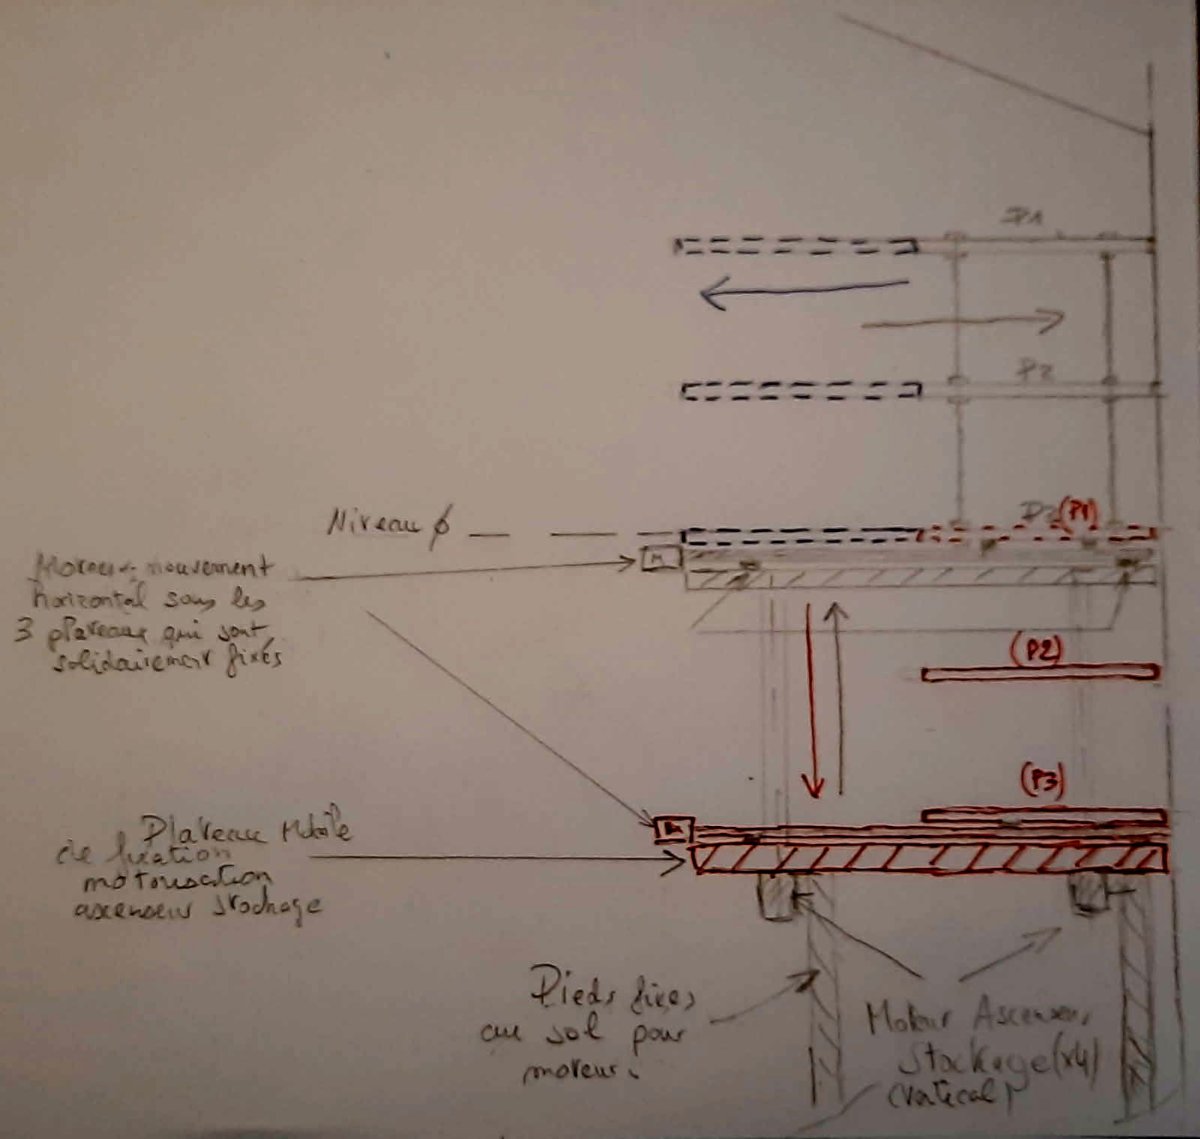 P1
P2
Niveau ϕ
P3 (P1)
M
Moteur mouvement
horizontal sous les
3 plateaux qui sont
solidairement fixés
(P2)
(P3)
M
Plateau Mobile
de fixation
motorisation
ascenseur stockage
Pieds fixes
au sol pour
moteurs
Moteur Ascenseur
Stockage (x4)
(vertical)